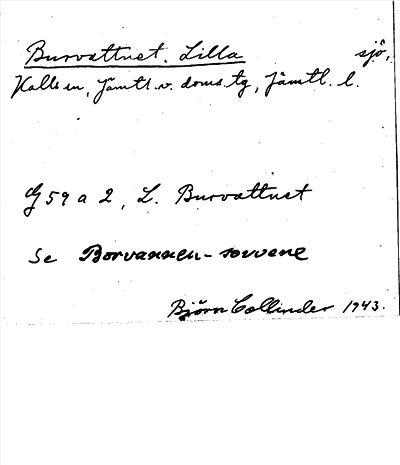 Burvattnet. Lilla sjö,
Kallsen, Jämtl. v. doms. tg, Jämtl. l.
G 59 a 2, L. Burvattnet
Se Borvannen-sovvene
Björn Collinder 1943.